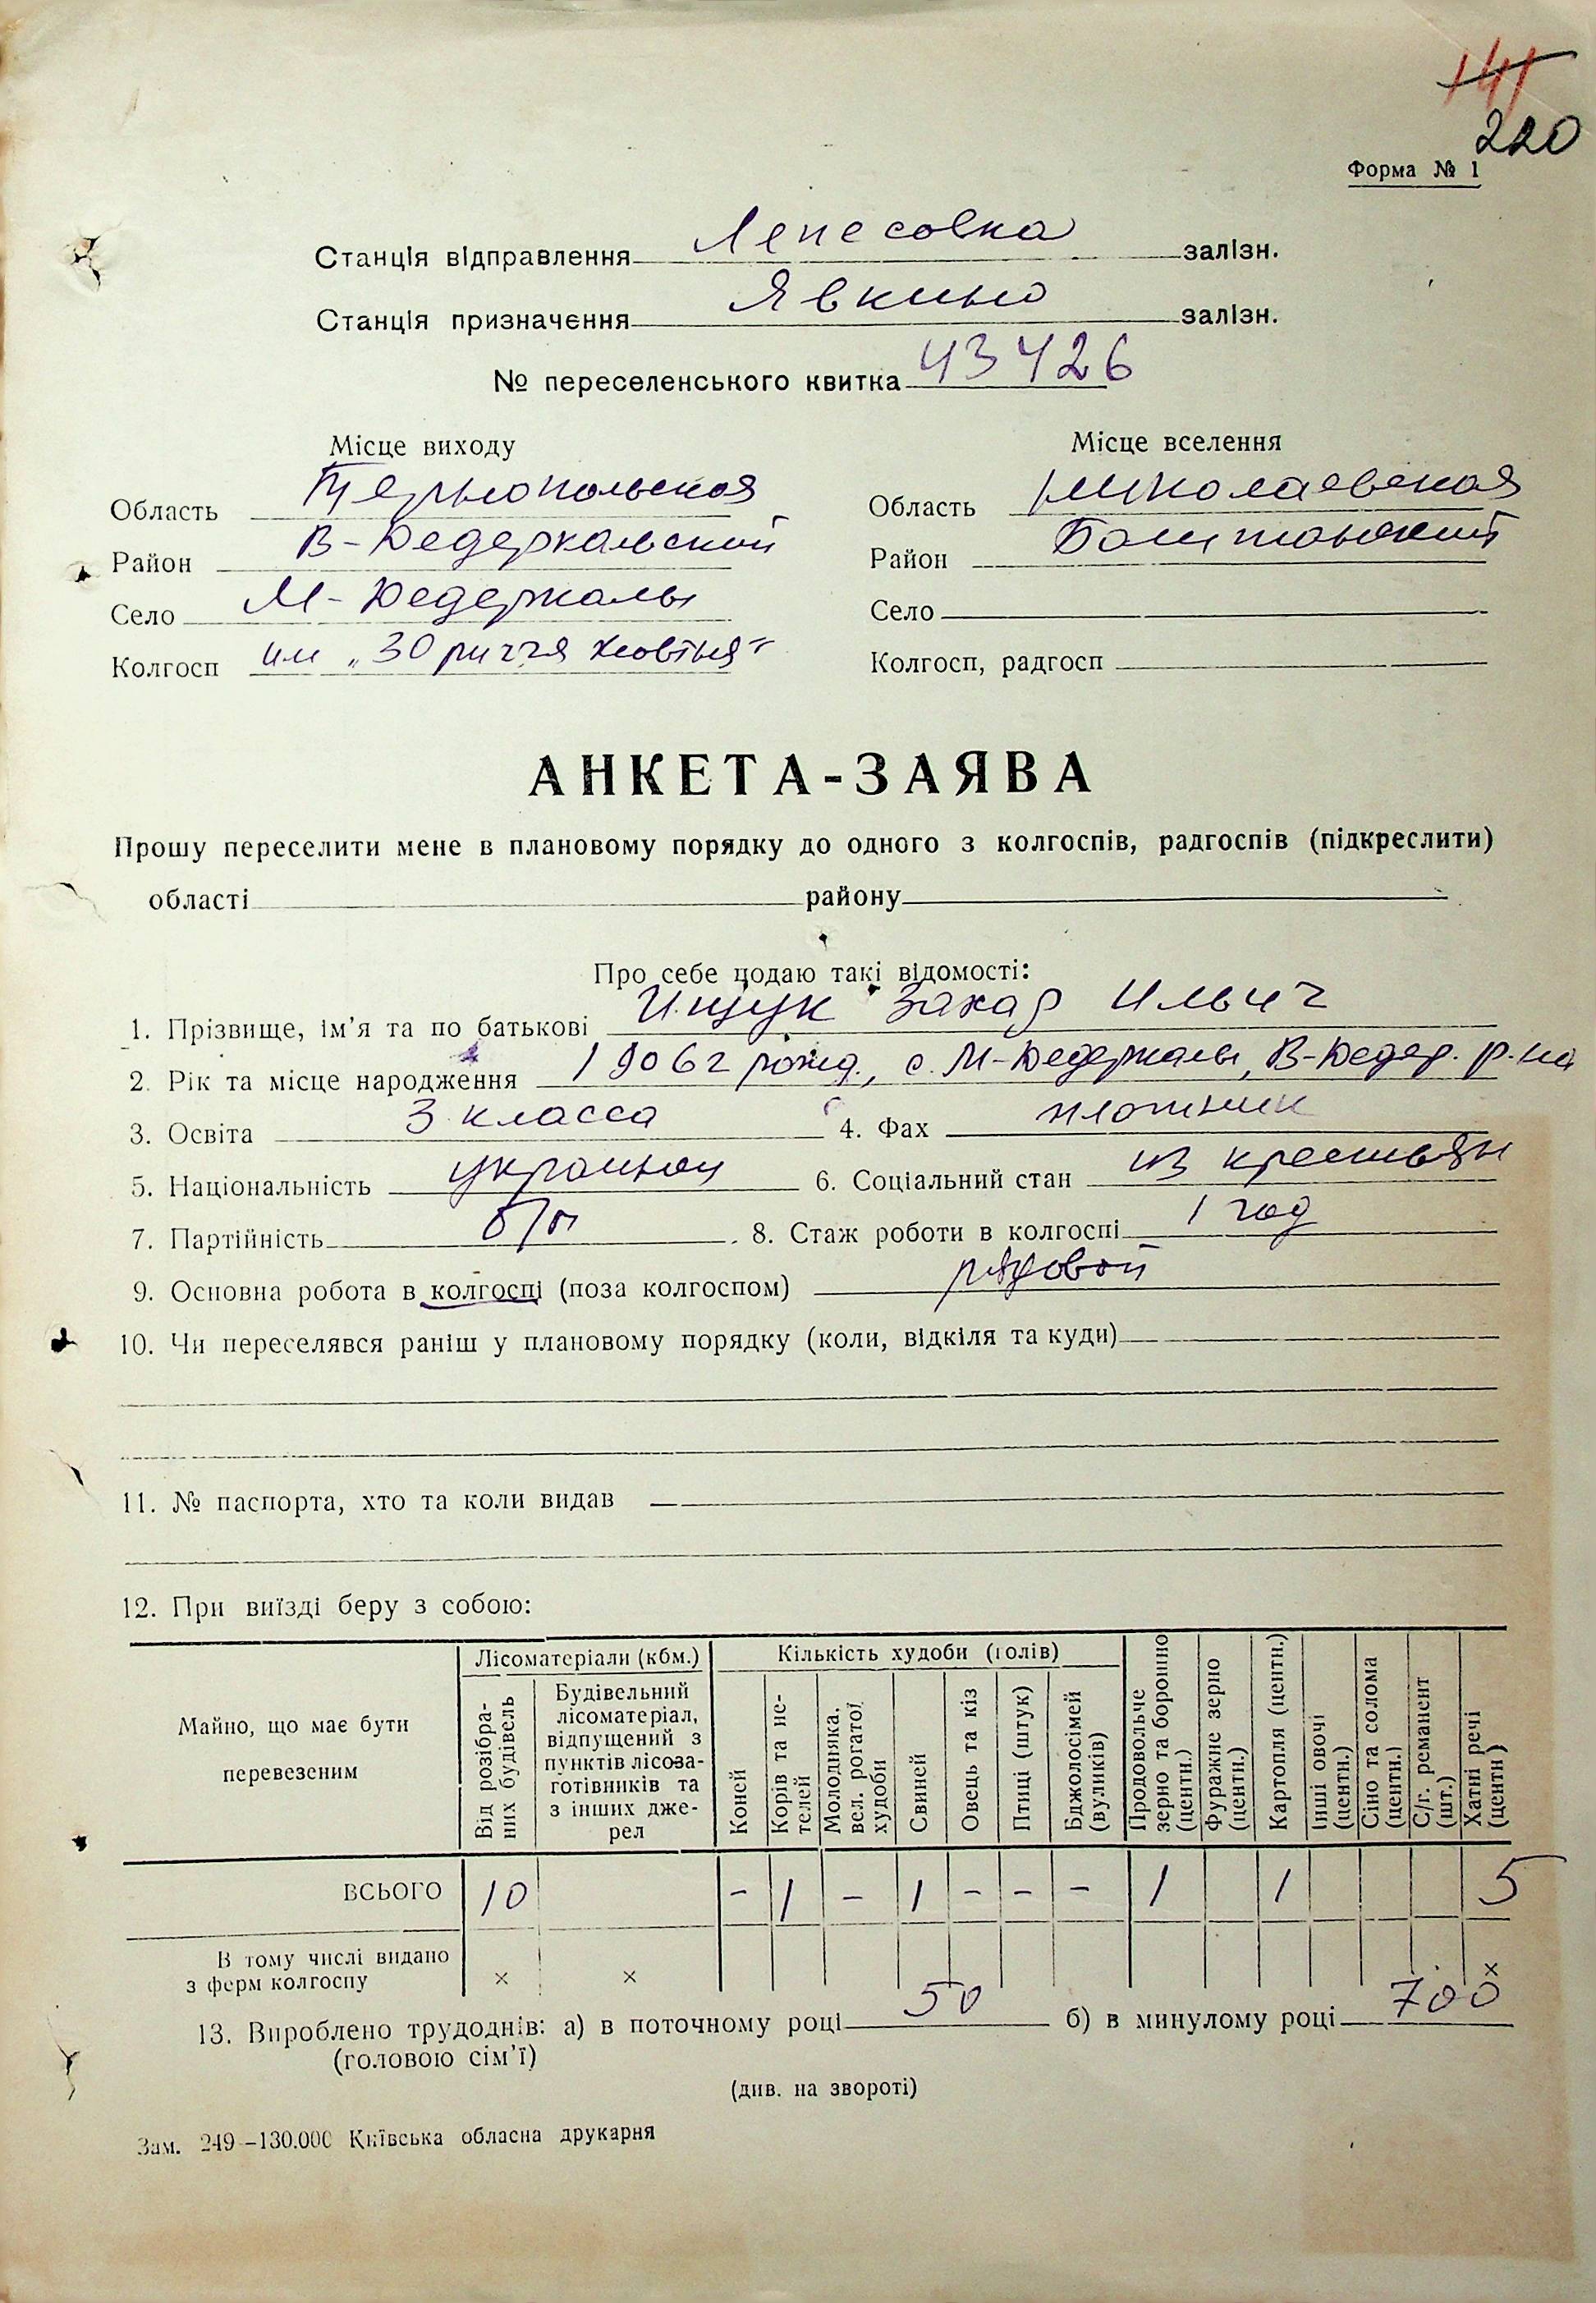 141
220
Форма № 1
Станція відправлення Лепесовка залізн.
Станція призначення Явкино залізн.
№ переселенського квитка 43426
Місце виходу
Місце вселення
Область Тернопольская
Область Николаевская
Район В-Дедеркальский
Район Баштанский
Село М-Дедеркалы
Село
Колгосп им „30 риччя Жовтня"
Колгосп, радгосп
АНКЕТА-ЗАЯВА
Прошу переселити мене в плановому порядку до одного з колгоспів, радгоспів (підкреслити)
області району
Про себе подаю такі відомості:
1. Прізвище, ім'я та по батькові Ищук Захар Ильич
2. Рік та місце народження 1906 г рожд., с. М-Дедеркалы, В-Дедер. р-на
3. Освіта 3 класса 4. Фах плотник
5. Національність украинец 6. Соціальний стан из крестьян
7. Партійність б/п 8. Стаж роботи в колгоспі 1 год
9. Основна робота в колгоспі (поза колгоспом) рядовой
10. Чи переселявся раніш у плановому порядку (коли, відкіля та куди)
11. № паспорта, хто та коли видав —
12. При виїзді беру з собою:
Майно, що має бути перевезеним
Лісоматеріали (кбм.)
Кількість худоби (голів)
Від розібраних будівель
Будівельний лісоматеріал, відпущений з пунктів лісозаготівників та з інших джерел
Коней
Корів та нетелей
Молодняка, вел. рогатої худоби
Свиней
Овець та кіз
Птиці (штук)
Бджолосімей (вуликів)
Продовольче зерно та борошно (центн.)
Фуражне зерно (центн.)
Картопля (центн.)
Інші овочі (центн.)
Сіно та солома (центн.)
С/г. реманент (шт.)
Хатні речі (центн)
ВСЬОГО 10 - 1 - 1 - - - 1 1 5
В тому числі видано з ферм колгоспу × × ×
13. Вироблено трудоднів: а) в поточному році 50 б) в минулому році 700
(головою сім'ї)
(див. на звороті)
Зам. 249—130.000 Київська обласна друкарня